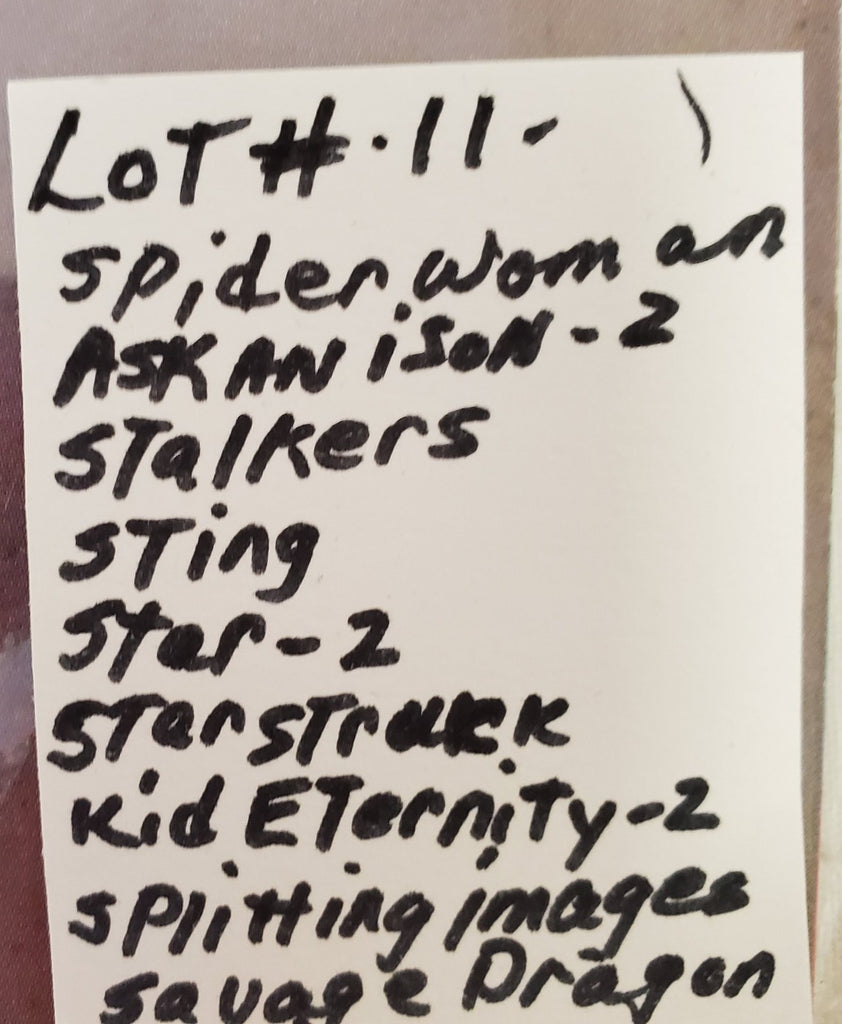 LOT #.11-
spider woman
ASKANiSON-2
STalkers
STing
Star-2
STarSTruckk
Kid ETerniTy-2
splitting images
savage Dragon